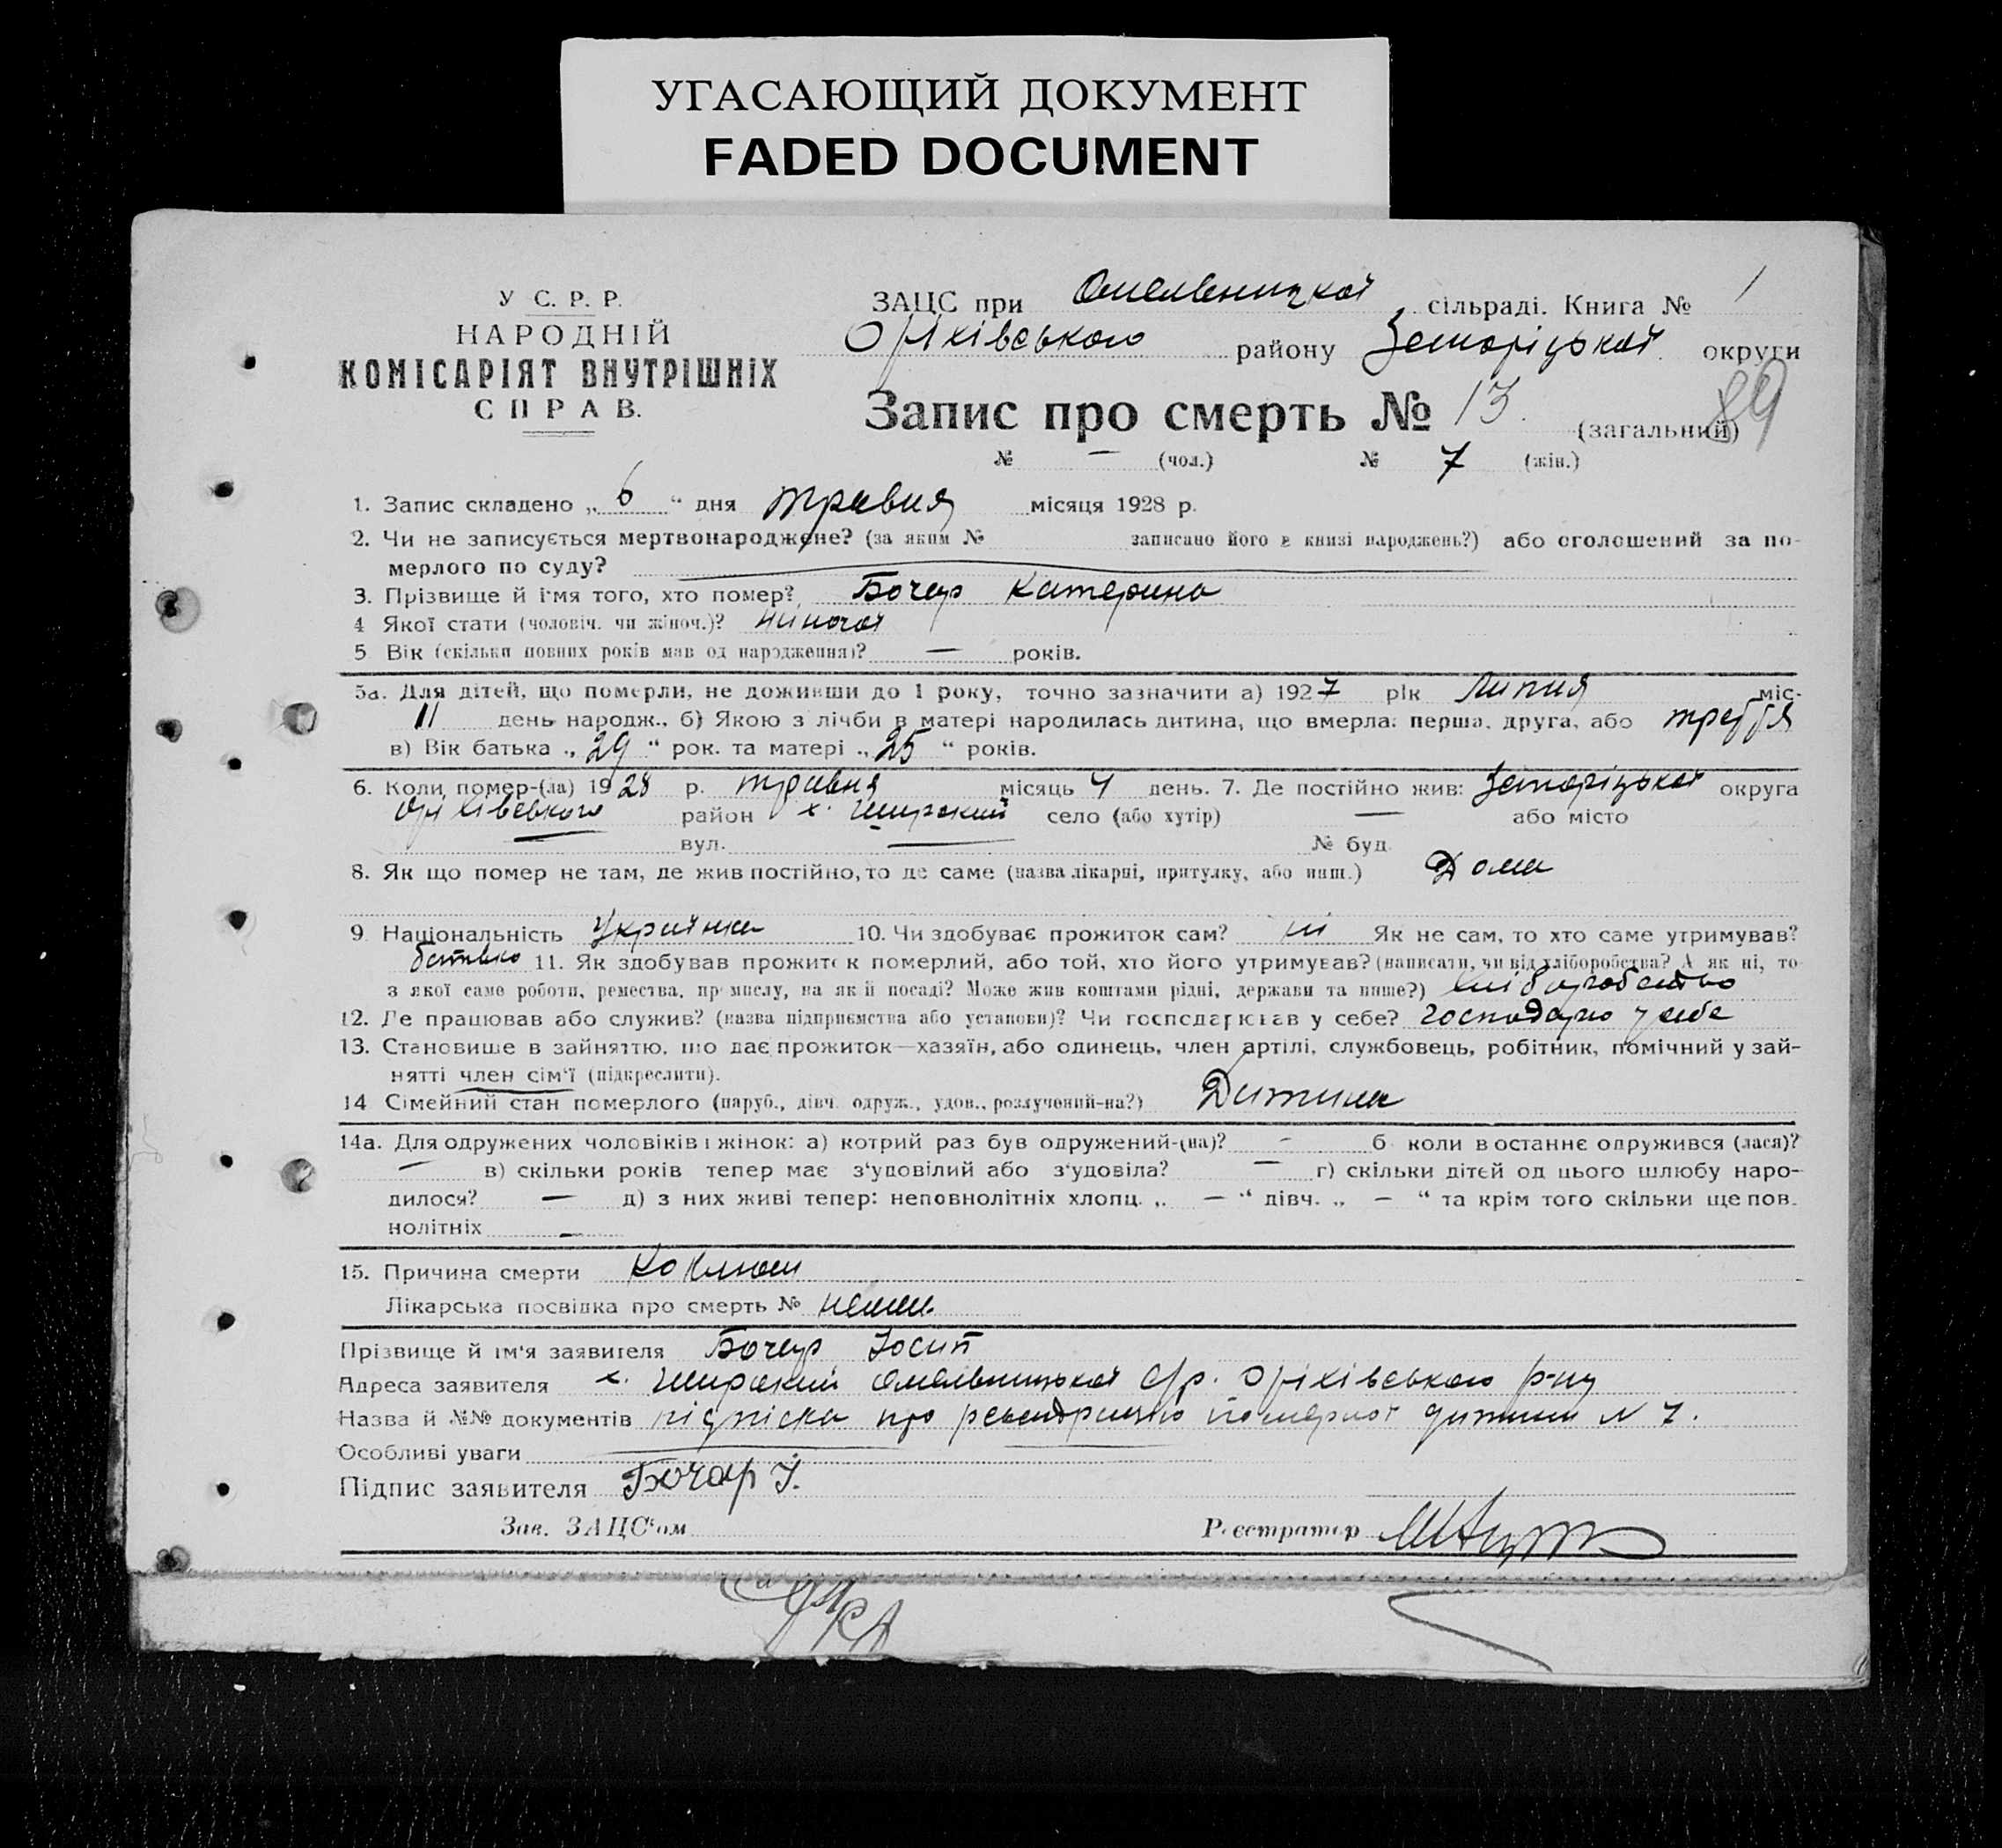 УГАСАЮЩИЙ ДОКУМЕНТ
FADED DOCUMENT
У С. Р. Р.
НАРОДНІЙ
КОМІСАРІЯТ ВНУТРІШНІХ
СПРАВ.
ЗАЦС при Омельницкой сільраді. Книга № 1
Оріхівського району Запоріцької округи
Запис про смерть № 13. (загальний) 89
№ — (чол.) № 7 (жін.)
1. Запис складено „ 6 “ дня травня місяця 1928 р.
2. Чи не записується мертвонароджене? (за яким № записано його в книзі народжень?) або оголошений за по-
мерлого по суду?
3. Прізвище й ім'я того, хто помер? Бочар Катерина
4 Якої стати (чоловіч. чи жіноч.)? жіночої
5 Вік (скільки повних років мав од народження)? — років.
5а. Для дітей, що померли, не доживши до 1 року, точно зазначити а) 1927 рік липня міс-
11 день народж., б) Якою з лічби в матері народилась дитина, що вмерла: перша, друга, або третя
в) Вік батька „ 29 “ рок. та матері „ 25 “ років.
6. Коли помер-(ла) 1928 р. травня місяць 4 день. 7. Де постійно жив: Запоріцької округа
Оріхівського район х. Широкий село (або хутір) — або місто
— вул. — № буд.
8. Як що помер не там, де жив постійно, то де саме (назва лікарні, притулку, або инш.) Дома
9 Національність Українка 10. Чи здобуває прожиток сам? ні Як не сам, то хто саме утримував?
батько 11. Як здобував прожиток померлий, або той, хто його утримував? (написати, чи від хліборобства? А як ні, то
з якої саме роботи, ремества, промислу, на якій посаді? Може жив коштами рідні, держави та инше?) хліборобство
12. Де працював або служив? (назва підприємства або установи)? Чи господарював у себе? господарю у себе
13. Становище в зайняттю, що дає прожиток—хазяїн, або одинець, член артілі, службовець, робітник, помічний у зай-
нятті член сім'ї (підкреслити).
14 Сімейний стан померлого (паруб., дівч. одруж., удов., розлучений-на?) Дитина
14а. Для одружених чоловіків і жінок: а) котрий раз був одружений-(на)? - б коли востаннє одружився (лася)?
— в) скільки років тепер має з'удовілий або з'удовіла? — г) скільки дітей од цього шлюбу наро-
дилося? — д) з них живі тепер: неповнолітніх хлопц. „ — “ дівч. „ — “ та крім того скільки ще пов.
нолітніх —
15. Причина смерти Коклюш
Лікарська посвідка про смерть № нема
Прізвище й ім'я заявителя Бочар Йосип
Адреса заявителя х. Широкий Омельницької с/р. Оріхівського р-ну
Назва й №№ документів підпіска про реєстрацію померлої дитини N 7.
Особливі уваги
Підпис заявителя Бочар Й.
Зав. ЗАЦС'ом Реєстратор